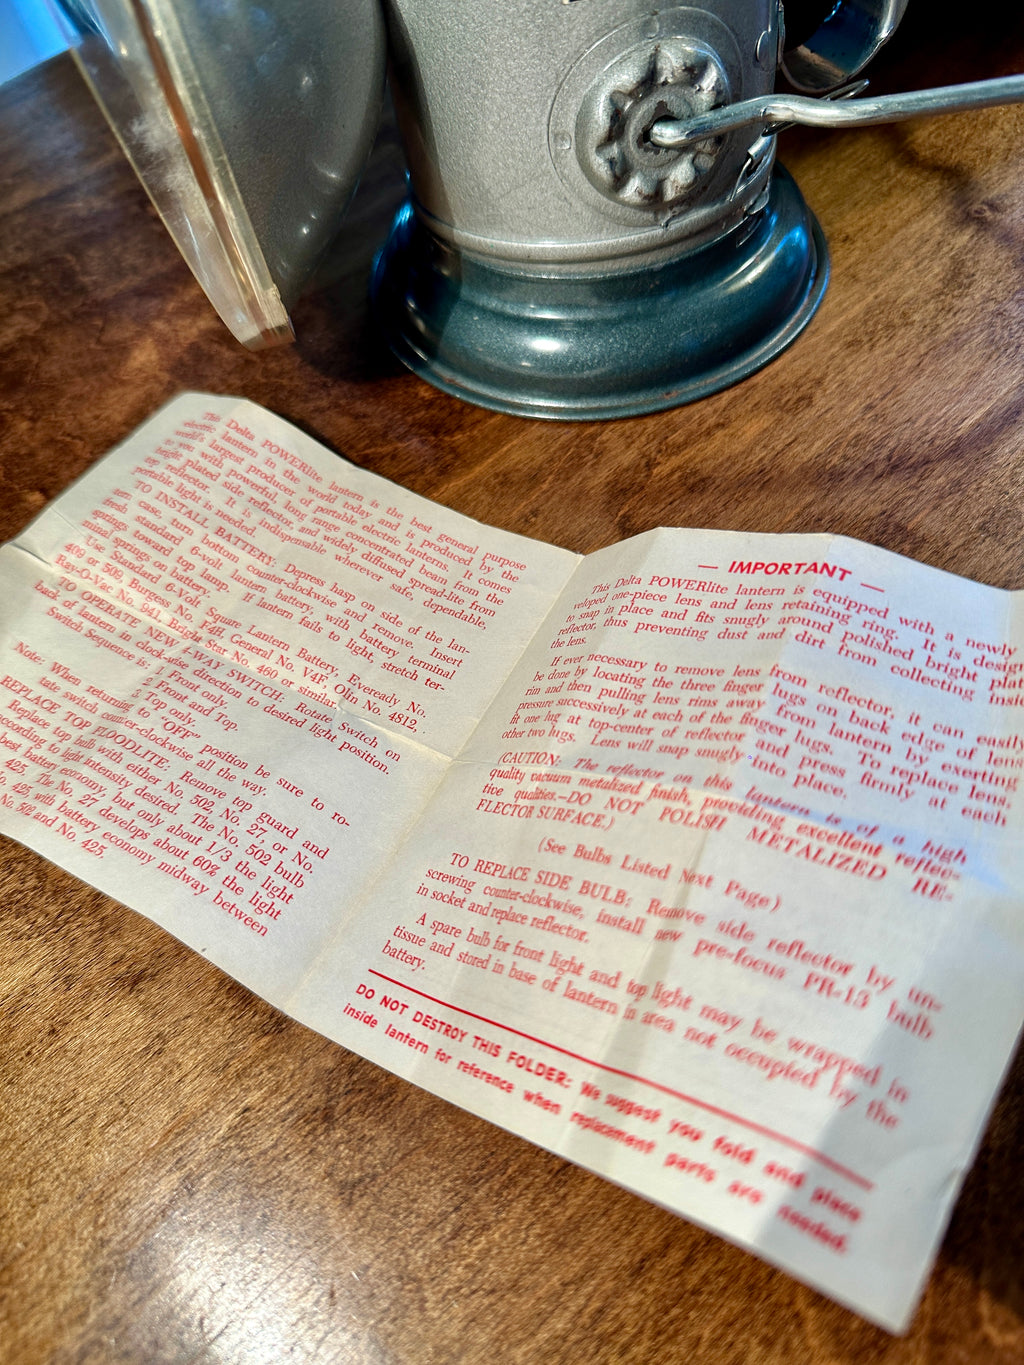 This Delta POWERlite lantern is the best general purpose
electric lantern in the world today and is produced by the
world's largest producer of portable electric lanterns. It comes
to you with powerful, long range concentrated beam from the
bright plated side reflector, and widely diffused spread-lite from
top reflector. It is indispensable wherever safe, dependable,
portable light is needed.
TO INSTALL BATTERY: Depress hasp on side of the lan-
tern case, turn bottom counter-clockwise and remove. Insert
fresh standard 6-volt lantern battery, with battery terminal
springs toward top lamp. If lantern fails to light, stretch ter-
minal springs on battery.
Use Standard 6-Volt Square Lantern Battery, Eveready No.
409 or 509, Burgess No. F4H, General No. V4F, Olin No. 4812,
Ray-O-Vac No. 941, Bright Star No. 460 or similar.
TO OPERATE NEW 4-WAY SWITCH: Rotate Switch on
back of lantern in clock-wise direction to desired light position.
Switch Sequence is: 1. Front only.
2. Front and Top.
3. Top only.
Note: When returning to "OFF" position be sure to ro-
tate switch counter-clockwise all the way.
REPLACE TOP FLOODLITE: Remove top guard and
Replace top bulb with either No. 502, No. 27, or No.
according to light intensity desired. The No. 502 bulb
best battery economy, but only about 1/3 the light
425. The No. 27 develops about 60% the light
425, with battery economy midway between
No. 502 and No. 425.
— IMPORTANT —
This Delta POWERlite lantern is equipped with a newly
veloped one-piece lens and lens retaining ring. It is design
to snap in place and fits snugly around polished bright plat
reflector, thus preventing dust and dirt from collecting insid
the lens.
If ever necessary to remove lens from reflector, it can easily
be done by locating the three finger lugs on back edge of lens
rim and then pulling lens rims away from lantern by exerting
pressure successively at each of the finger lugs. To replace lens,
fit one lug at top-center of reflector and press firmly at each
other two lugs. Lens will snap snugly into place.
(CAUTION: The reflector on this lantern is of a high
quality vacuum metalized finish, providing excellent reflec-
tive qualities.—DO NOT POLISH METALIZED RE-
FLECTOR SURFACE.)
(See Bulbs Listed Next Page)
TO REPLACE SIDE BULB: Remove side reflector by un-
screwing counter-clockwise, install new pre-focus PR-13 bulb
in socket and replace reflector.
A spare bulb for front light and top light may be wrapped in
tissue and stored in base of lantern in area not occupied by the
battery.
DO NOT DESTROY THIS FOLDER: We suggest you fold and place
inside lantern for reference when replacement parts are needed.